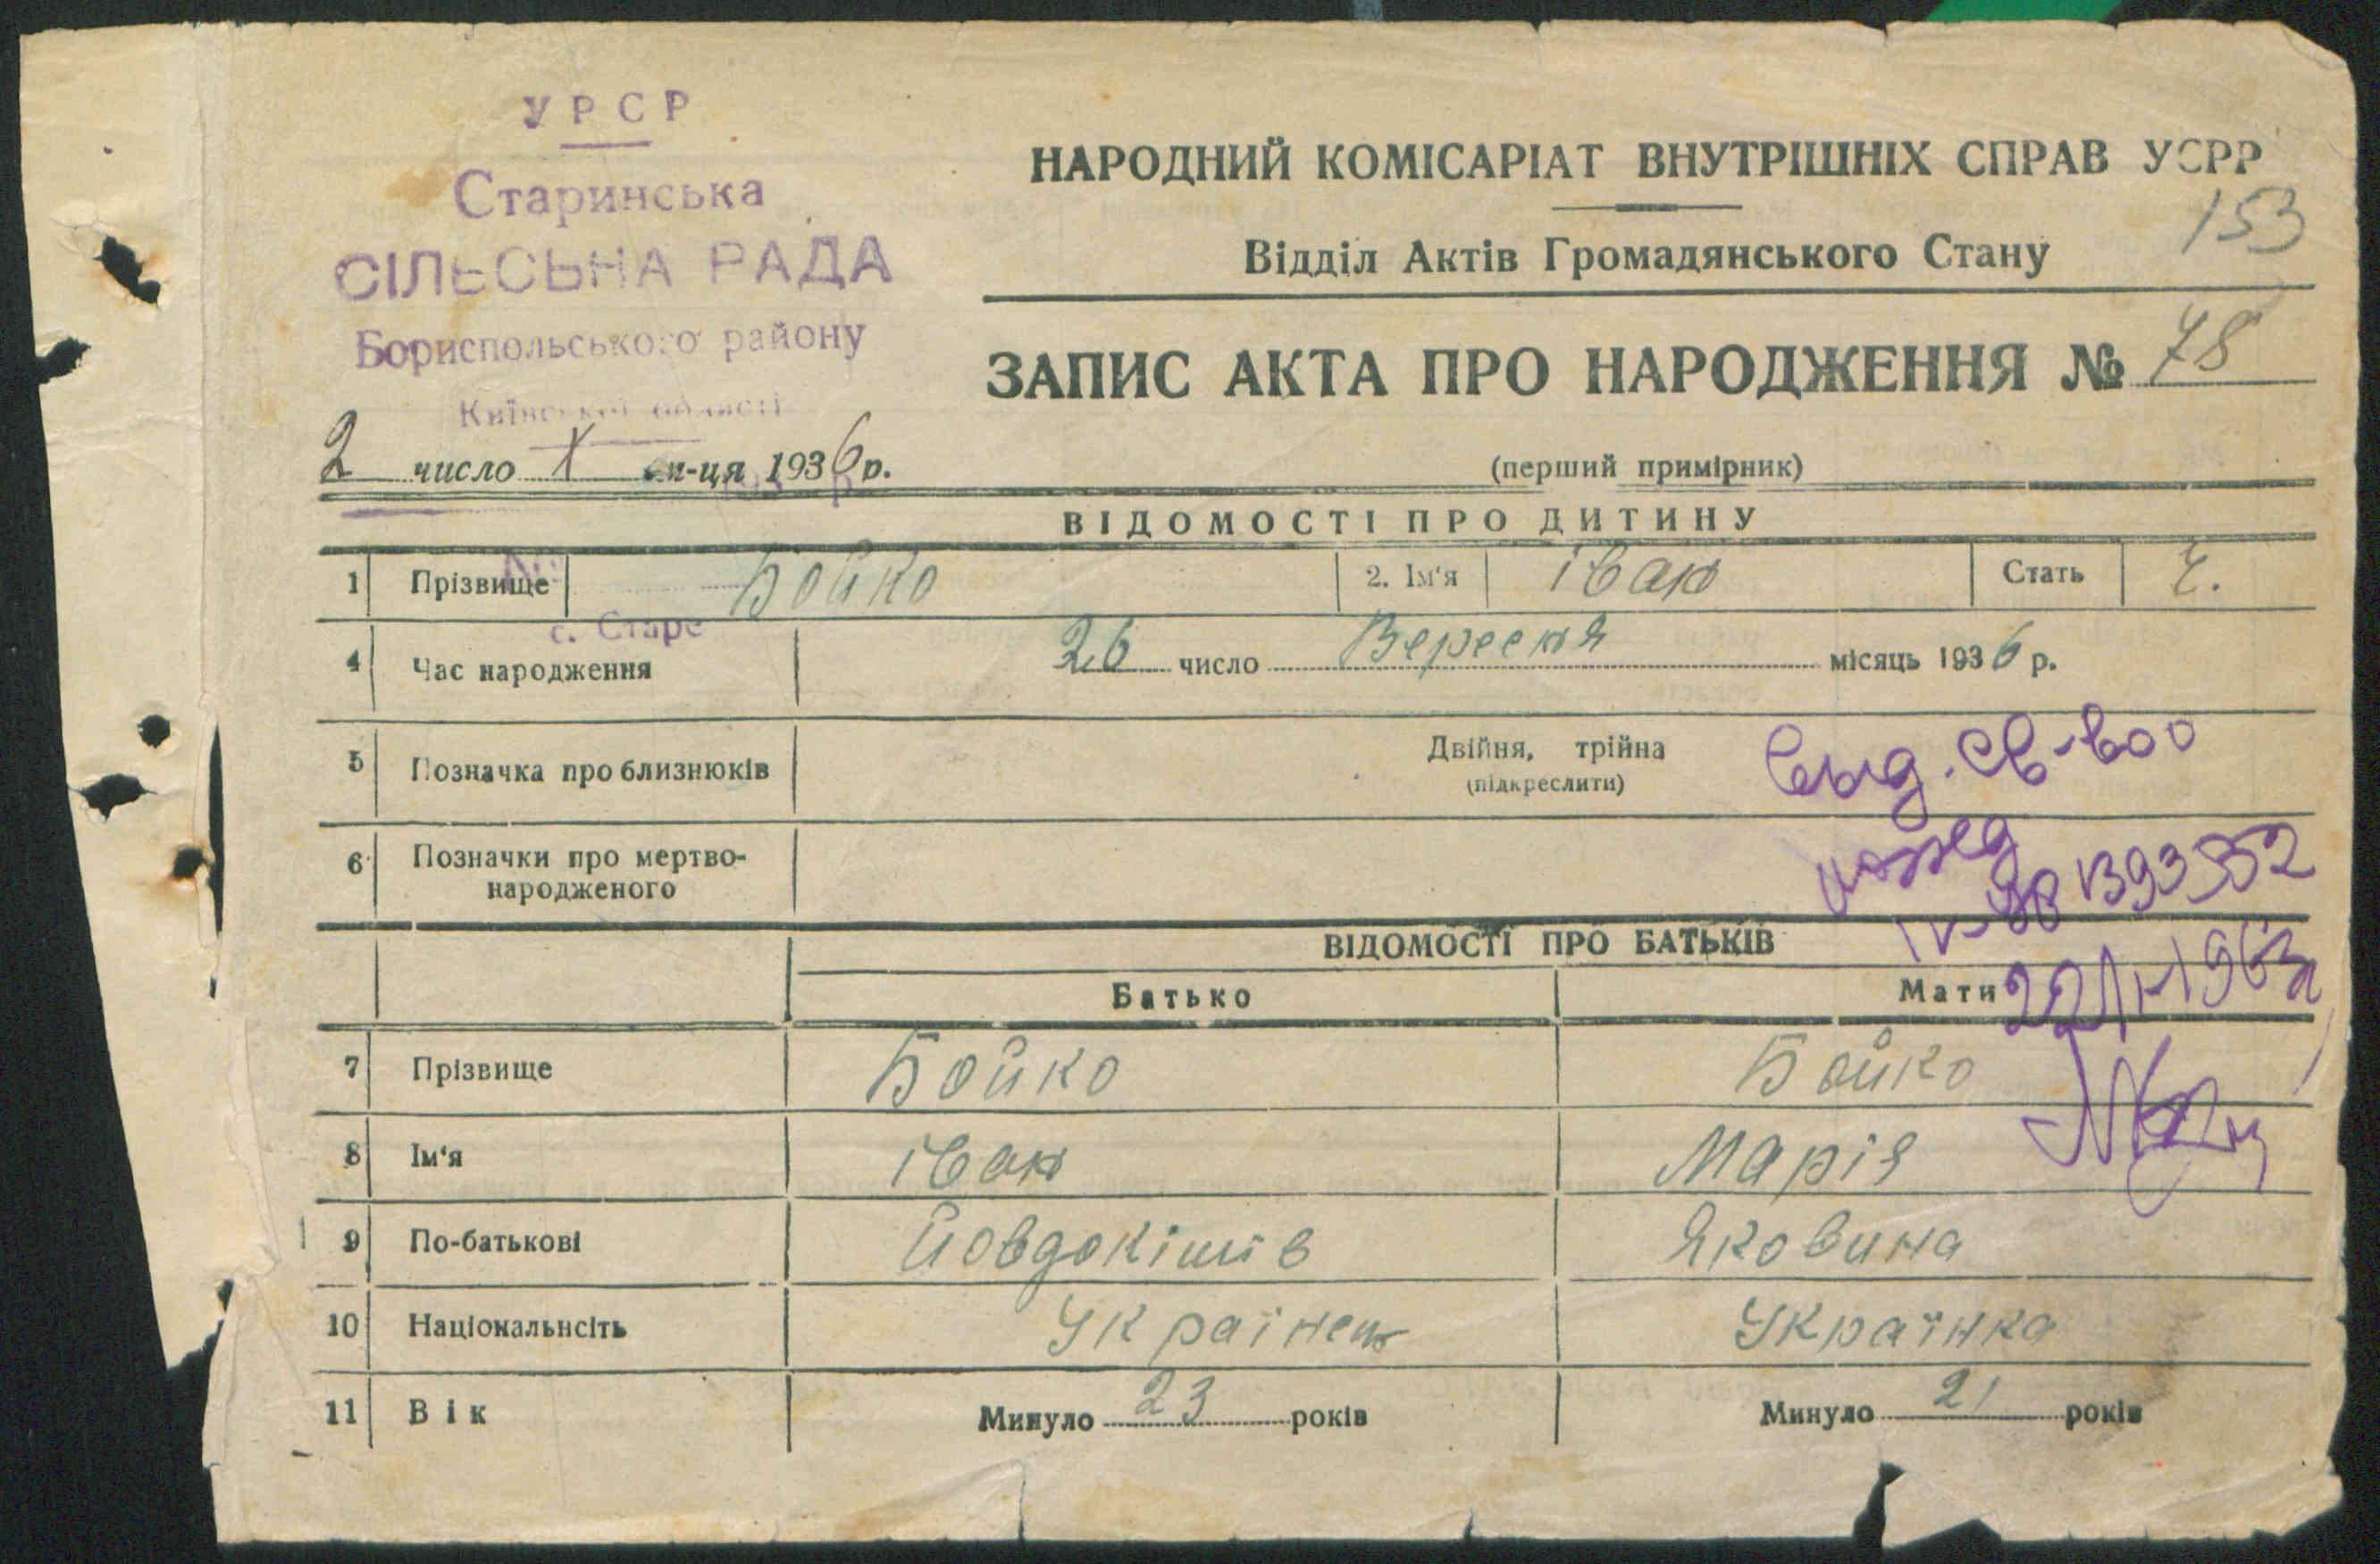 УРСР
Старинська
СІЛЬСЬКА РАДА
Бориспольського району
Київської області
2 число X м-ця 1936 р.
НАРОДНИЙ КОМІСАРІАТ ВНУТРІШНІХ СПРАВ УСРР
153
Відділ Актів Громадянського Стану
ЗАПИС АКТА ПРО НАРОДЖЕННЯ № 78
(перший примірник)
ВІДОМОСТІ ПРО ДИТИНУ
1 Прізвище Бойко 2. Ім'я Іван Стать Ч.
№
с. Старе
4 Час народження 26 число Вересня місяць 1936 р.
5 Позначка про близнюків Двійня, трійна
(підкреслити)
6 Позначки про мертво-
народженого
св-во
1393352
1963
ВІДОМОСТІ ПРО БАТЬКІВ
Батько Мати
7 Прізвище Бойко Бойко
8 Ім'я Іван Марія
9 По-батькові Йовдокімів Яковина
10 Національнсіть Українець Українка
11 Вік Минуло 23 років Минуло 21 років